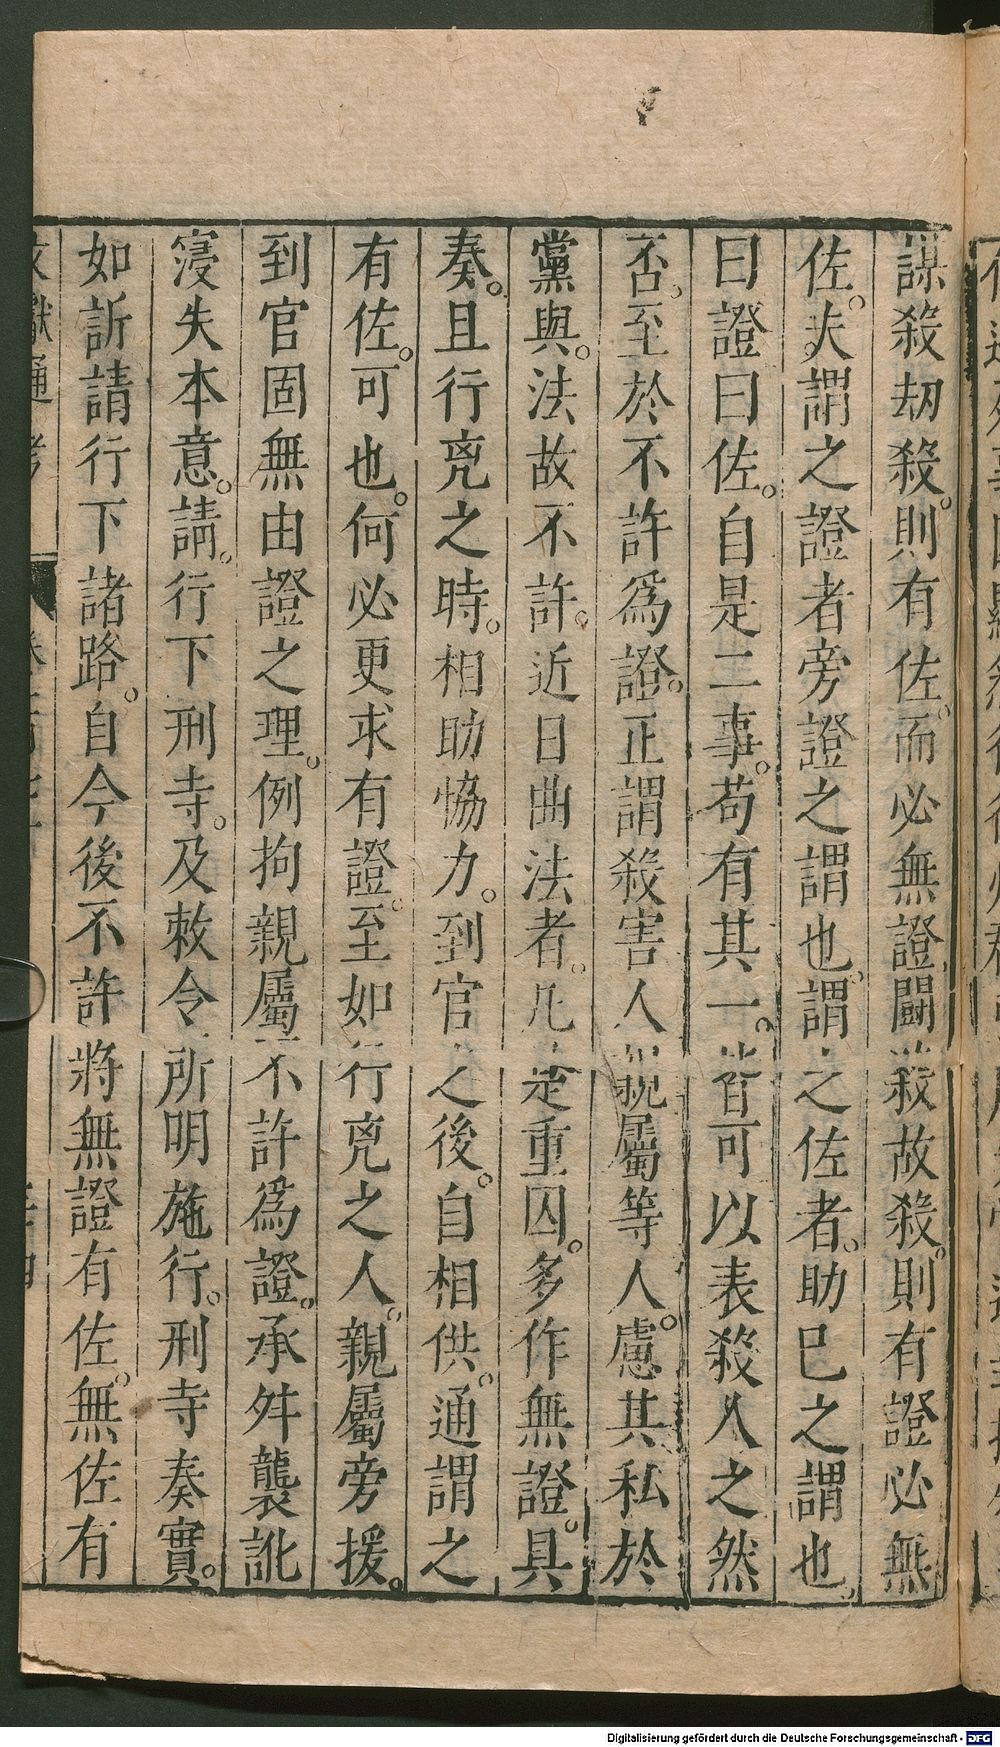 謀殺刼殺。則有佐。而必無證。鬭殺故殺。則有證必無
佐。夫謂之證者旁證之謂也。謂之佐者。助巳之謂也。
曰證曰佐。自是二事。苟有其一。皆可以表殺人之然
否。至於不許爲證。正謂殺害人親屬等人。慮其私於
黨與。法故不許。近日曲法者。凡是重囚。多作無證。具
奏。且行兇之時。相助恊力。到官之後。自相供。通謂之
有佐。可也。何必更求有證。至如行兇之人。親屬旁援。
到官固無由證之理。例拘親屬不許爲證。承舛襲訛
寖失本意。請。行下刑寺。及敕令所明施行。刑寺奏實。
如訢請行下諸路。自今後不許將無證有佐。無佐有
文獻通考
Digitalisierung gefördert durch die Deutsche Forschungsgemeinschaft - DFG